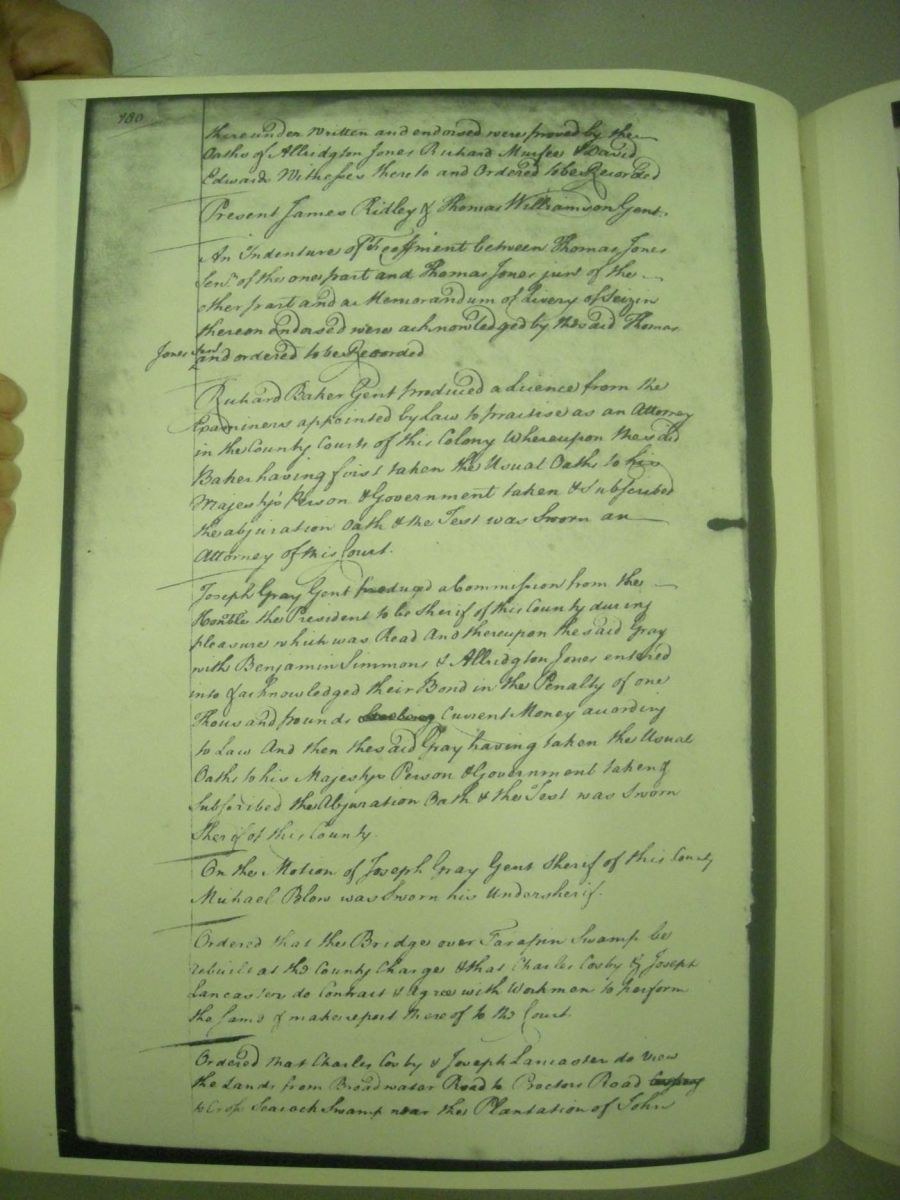 180
thereunder written and endorsed were proved by the
Oaths of Allridgton Jones Richard Murfee & David
Edwards Witnesses thereto and Ordered to be Recorded
Present James Ridley & Thomas Williamson Gent.
An Indenture of Feoffment between Thomas Jones
Senr. of the one part and Thomas Jones junr of the
other part and a Memorandum of Livery of Seizin
thereon Endorsed were acknowledged by the said Thomas
Jones Senr. and ordered to be Recorded
Richard Baker Gent produced a licence from the
Examiners appointed by Law to practise as an Attorney
in the County Courts of this Colony Whereupon the said
Baker having first taken the Usual Oaths to his
Majesty's Person & Government taken & subscribed
the abjuration Oath & the Test was Sworn an
Attorney of this Court.
Joseph Gray Gent produced a Commission from the
Honble the President to be Sherif of this County during
pleasure which was Read And thereupon the said Gray
with Benjamin Simmons & Allridgton Jones entered
into & acknowledged their Bond in the Penalty of one
Thousand pounds Current Money according
to Law And then the said Gray having taken the Usual
Oaths to his Majestys Person & Government taken &
Subscribed the Abjuration Oath & the Test was Sworn
Sherif of this County.
On the Motion of Joseph Gray Gent Sherif of this County
Michael Blow was Sworn his Undersherif.
Ordered that the Bridge over Tarapin Swamp be
rebuilt at the County Charge & that Charles Cosby & Joseph
Lancaster do Contract & Agree with Workmen to perform
the same & make report thereof to the Court
Ordered that Charles Cosby & Joseph Lancaster do view
the Lands from Broadwater Road to Proctors Road
to Cross Seacock Swamp near the Plantation of John